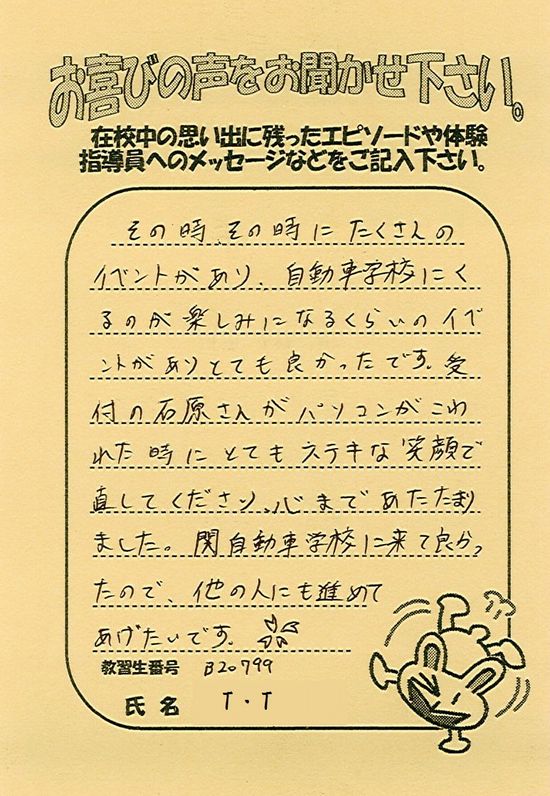 お喜びの声をお聞かせ下さい。
在校中の思い出に残ったエピソードや体験
指導員へのメッセージなどをご記入下さい。
その時、その時にたくさんの
イベントがあり、自動車学校にく
るのが楽しみになるくらいのイベ
ントがありとても良かったです。受
付の石原さんがパソコンがこわ
れた時にとてもステキな笑顔で
直してくださり、心まであたたまり
ました。関自動車学校に来て良かっ
たので、他の人にも進めて
あげたいです。
教習生番号 B20799
氏名 T・T